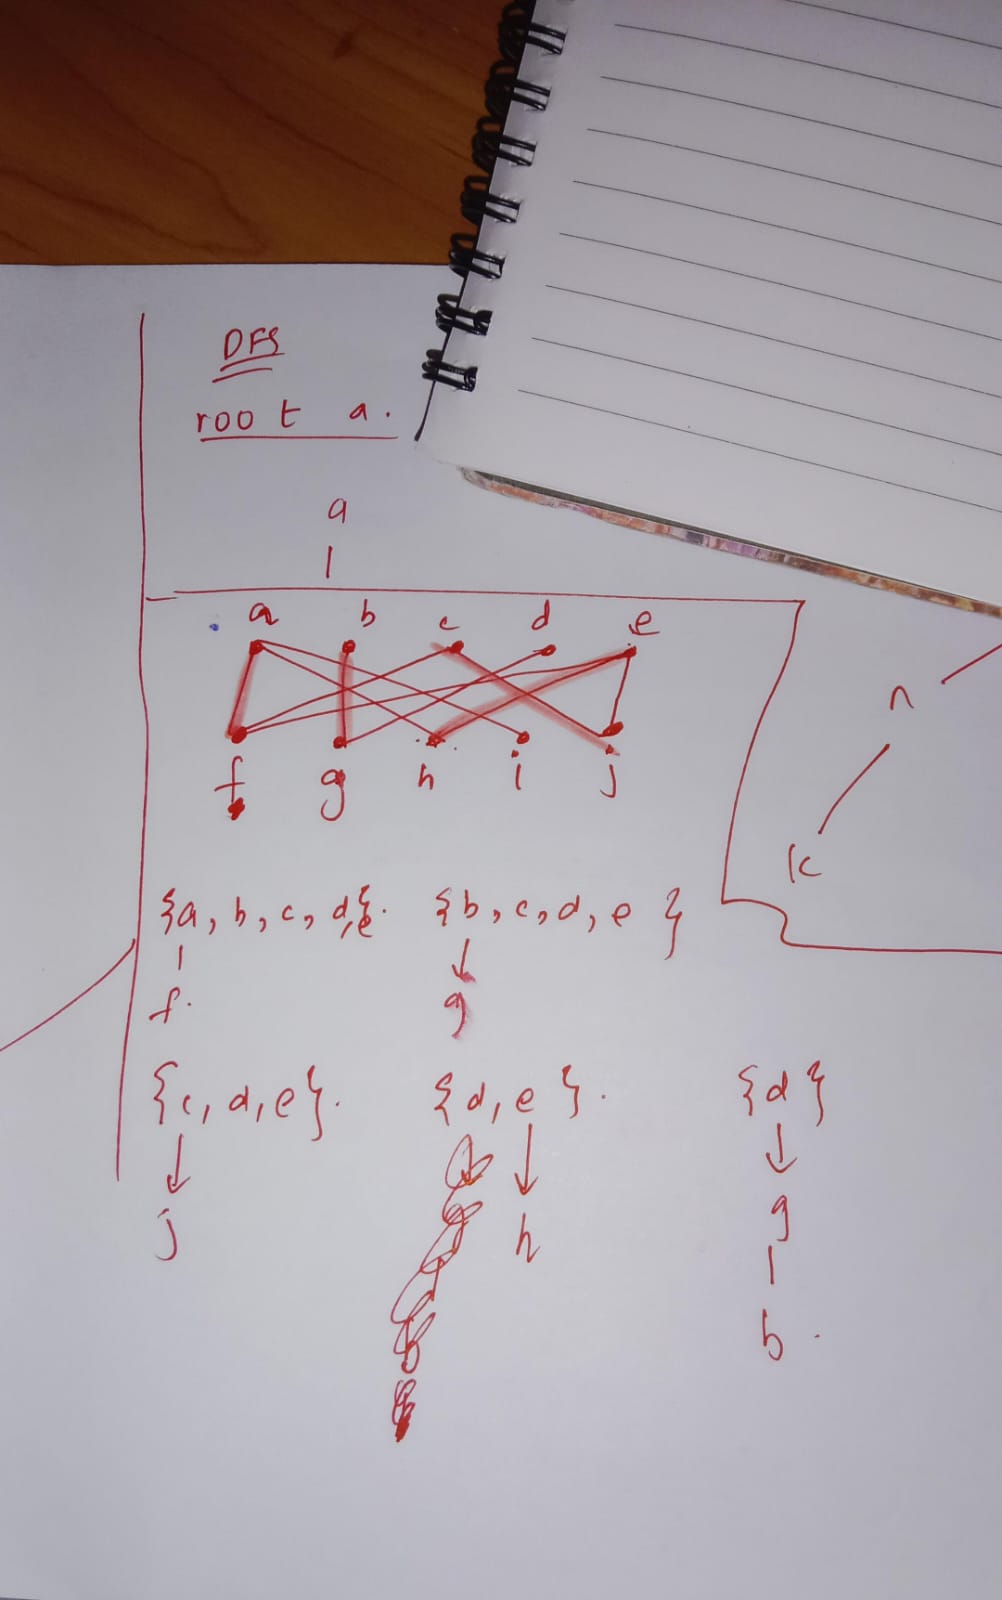 DFS
root a.
a
a b c d e
f g h i j
n
k
{a, b, c, d, e}. {b, c, d, e }
f. g
{c, d, e}. {d, e }. {d}
j h g
b